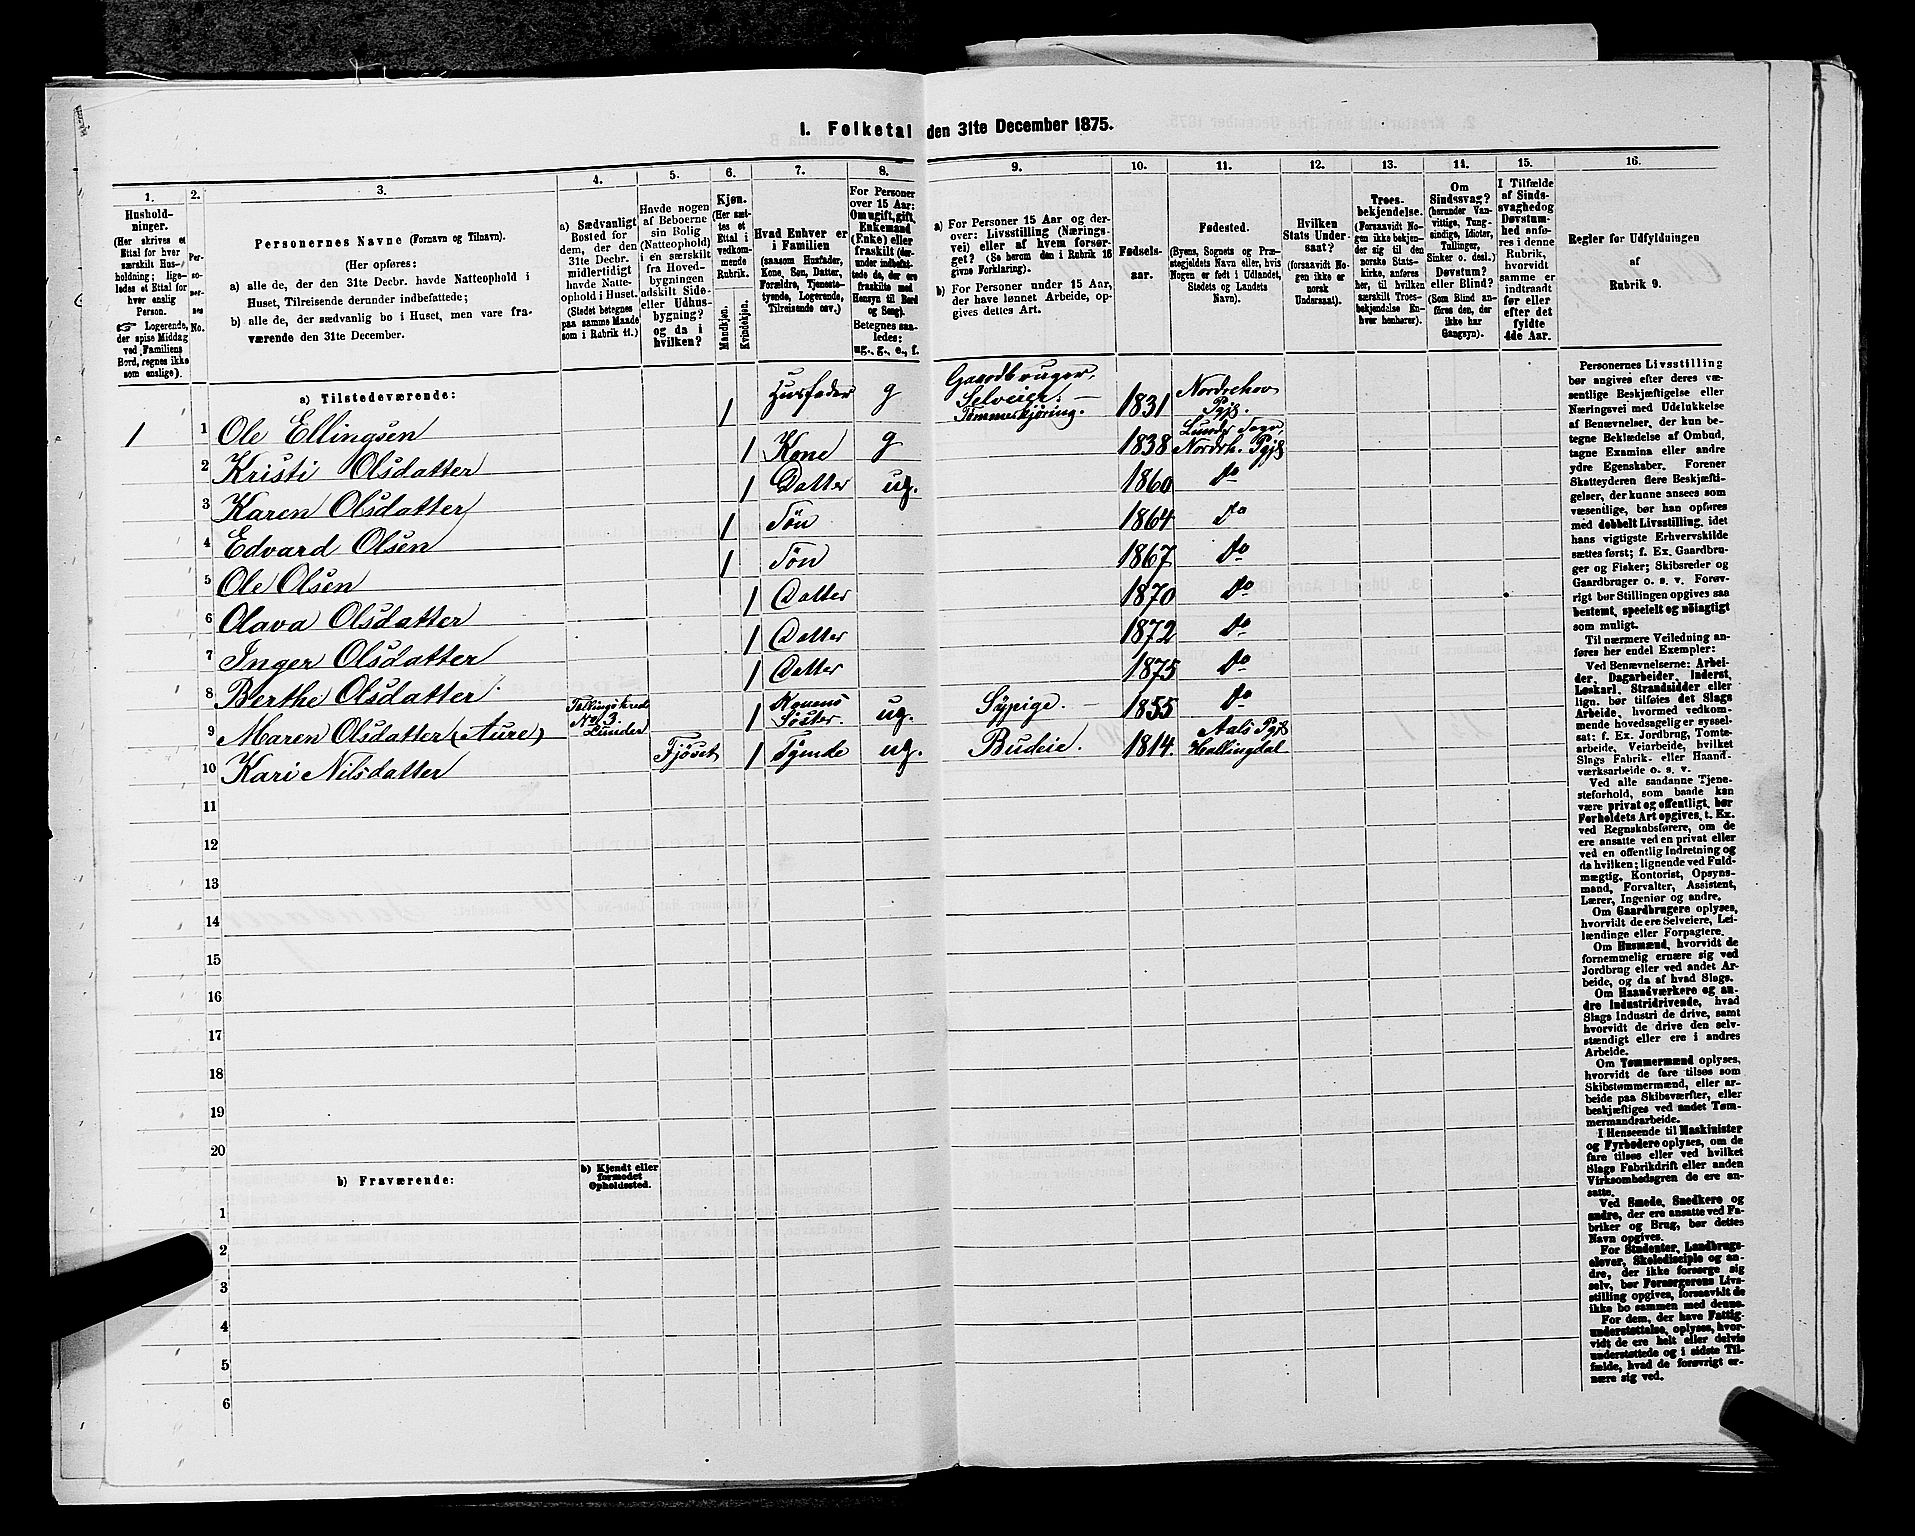 I. Folketal den 31te December 1875.
1.
Hushold-
ninger.
(Her skrives et
Ettal for hver
særskilt Hus-
holdning; lige-
ledes et Ettal for
hver enslig
Person.
Logerende,
der spise Middag
ved Familiens
Bord, regnes ikke
som enslige).
2.
Per-
so-
ner-
nes
No.
3.
Personernes Navne (Fornavn og Tilnavn).
(Her opføres:
a) alle de, der den 31te Decbr. havde Natteophold i
Huset, Tilreisende derunder indbefattede;
b) alle de, der sædvanlig bo i Huset, men vare fra-
værende den 31te December.
4.
a) Sædvanligt
Bosted for
dem, der den
31te Decbr.
midlertidigt
havde Natte-
ophold i Huset.
(Stedet betegnes
paa samme Maade
som i Rubrik 11.)
5.
Havde nogen
af Beboerne
sin Bolig
(Natteophold)
i en særskilt
fra Hoved-
bygningen
adskilt Side-
eller Udhus-
bygning?
og da i
hvilken?
6.
Kjøn.
(Her sæt-
tes et
Ettal i
vedkom-
mende
Rubrik.
Mandkjøn.
Kvindekjøn.
7.
Hvad Enhver er
i Familien
(saasom Husfader,
Kone, Søn, Datter,
Forældre, Tjeneste-
tyende, Logerende,
Tilreisende osv.)
8.
For Personer
over 15 Aar:
Om ugift, gift,
Enkemand
(Enke) eller
fraskilt (der-
under indbefat-
tede de, der ere
fraskilte med
Hensyn til Bord
og Seng).
Betegnes saa-
ledes:
ug., g., e., f.
9.
a) For Personer 15 Aar og der-
over: Livsstilling (Nærings-
vei) eller af hvem forsør-
get? (Se herom den i Rubrik 16
givne Forklaring).
b) For Personer under 15 Aar,
der have lønnet Arbeide, op-
gives dettes Art.
10.
Fødsels-
aar.
11.
Fødested.
(Byens, Sognets og Præ-
stegjeldets Navn eller, hvis
Nogen er født i Udlandet,
Stedets og Landets
Navn).
12.
Hvilken
Stats Under-
saat?
(forsaavidt No-
gen ikke er
norsk
Undersaat).
13.
Troes-
bekjendelse.
(Forsaavidt No-
gen ikke bekjen-
der sig til den
norske Stats-
kirke, anføres
her, til hvilken
særskilt Troes-
bekjendelse En-
hver henhører).
14.
Om
Sindssvag?
(herunder Van-
vittige, Tung-
sindige, Idioter,
Tullinger,
Sinker o. desl.)
Døvstum?
eller Blind?
(Som Blind an-
føres den, der
ikke har
Gangsyn).
15.
I Tilfælde
af Sinds-
svaghed og
Døvstum-
hed anføres
i denne
Rubrik,
hvorvidt
samme er
indtraadt
før eller
efter det
fyldte
4de Aar.
16.
Regler for Udfyldningen
af
Rubrik 9.
a) Tilstedeværende:
1 1 Ole Ellingsen 1 Husfader g Gaardbruger, Selveier. – Tømmerkjøring. 1831 Nordrehov Pgjl.
2 Kristi Olsdatter 1 Kone g 1838 Lunder Sogn, Nordrh. Pgjl
3 Karen Olsdatter 1 Datter ug. 1860 do
4 Edvard Olsen 1 Søn 1864 do
5 Ole Olsen 1 Søn 1867 do
6 Olava Olsdatter 1 Datter 1870 do
7 Inger Olsdatter 1 Datter 1872 do
8 Berthe Olsdatter 1 Datter 1875 do
9 Maren Olsdatter (Aure) Tellingskreds No 3. Lunder 1 Konens Søster. ug. Sypige. – 1855 do
10 Kari Nilsdatter Fjøset 1 Tyende ug. Budeie. 1814. Aals Pgjl Hallingdal
11
12
13
14
15
16
17
18
19
20
b) Fraværende:
b) Kjendt eller
formodet
Opholdssted.
1
2
3
4
5
6
Personernes Livsstilling
bør angives efter deres væ-
sentlige Beskjæftigelse eller
Næringsvei med Udelukkelse
af Benævnelser, der kun be-
tegne Beklædelse af Ombud,
tagne Examina eller andre
ydre Egenskaber. Forener
Skatteyderen flere Beskjæfti-
gelser, der kunne ansees som
væsentlige, bør han opføres
med dobbelt Livsstilling, idet
hans vigtigste Erhvervskilde
sættes først; f. Ex. Gaardbru-
ger og Fisker; Skibsreder og
Gaardbruger o. s. v. Forøv-
rigt bør Stillingen opgives saa
bestemt, specielt og nöiagtigt
som muligt.
Til nærmere Veiledning an-
føres her endel Exempler:
Ved Benævnelserne: Arbei-
der, Dagarbeider, Inderst,
Løskarl, Strandsidder eller
lign. bør tilføies det Slags
Arbeide, hvormed vedkom-
mende hovedsagelig er syssel-
sat; f. Ex. Jordbrug, Tomte-
arbeide, Veiarbeide, hvilket
Slags Fabrik- eller Haand-
værksarbeide o. s. v.
Ved alle saadanne Tjene-
steforhold, som baade kan
være privat og offentligt, bør
Forholdets Art opgives, t. Ex.
ved Regnskabsførere, om de
ere ansatte ved en privat eller
ved en offentlig Indretning og
da hvilken; lignende ved Fuld-
mægtig, Kontorist, Opsyns-
mand, Forvalter, Assistent,
Lærer, Ingeniør og andre.
Om Gaardbrugere oplyses,
hvorvidt de ere Selveiere, Lei-
lændinge eller Forpagtere.
Om Husmænd, hvorvidt de
fornemmelig ernære sig ved
Jordbrug eller ved andet Ar-
beide, og da af hvad Slags.
Om Haandværkere og an-
dre Industridrivende, hvad
Slags Industri de drive, samt
hvorvidt de drive den selv-
stændigt eller ere i andres
Arbeide.
Om Tømmermænd oplyses,
hvorvidt de fare tilsøs som
Skibstømmermænd, eller ar-
beide paa Skibsværfter, eller
beskjæftiges ved andet Tøm-
mermandsarbeide.
I Henseende til Maskinister
og Fyrbødere oplyses, om de
fare tilsøs eller ved hvilket
Slags Fabrikdrift eller anden
Virksomhedsgren de ere an-
satte.
Ved Smede, Snedkere og
andre, der ere ansatte ved Fa-
briker og Brug, bør dettes
Navn opgives.
For Studenter, Landbrugs-
elever, Skoledisciple og an-
dre, der ikke forsørge sig
selv, bør Forsørgerens Livs-
stilling opgives, forsaavidt de
ikke bo sammen med denne.
For dem, der have Fattig-
understøttelse, oplyses, hvor-
vidt de ere helt eller delvis
understøttede og i sidste Til-
fælde, hvad de forøvrigt er-
nære sig ved.